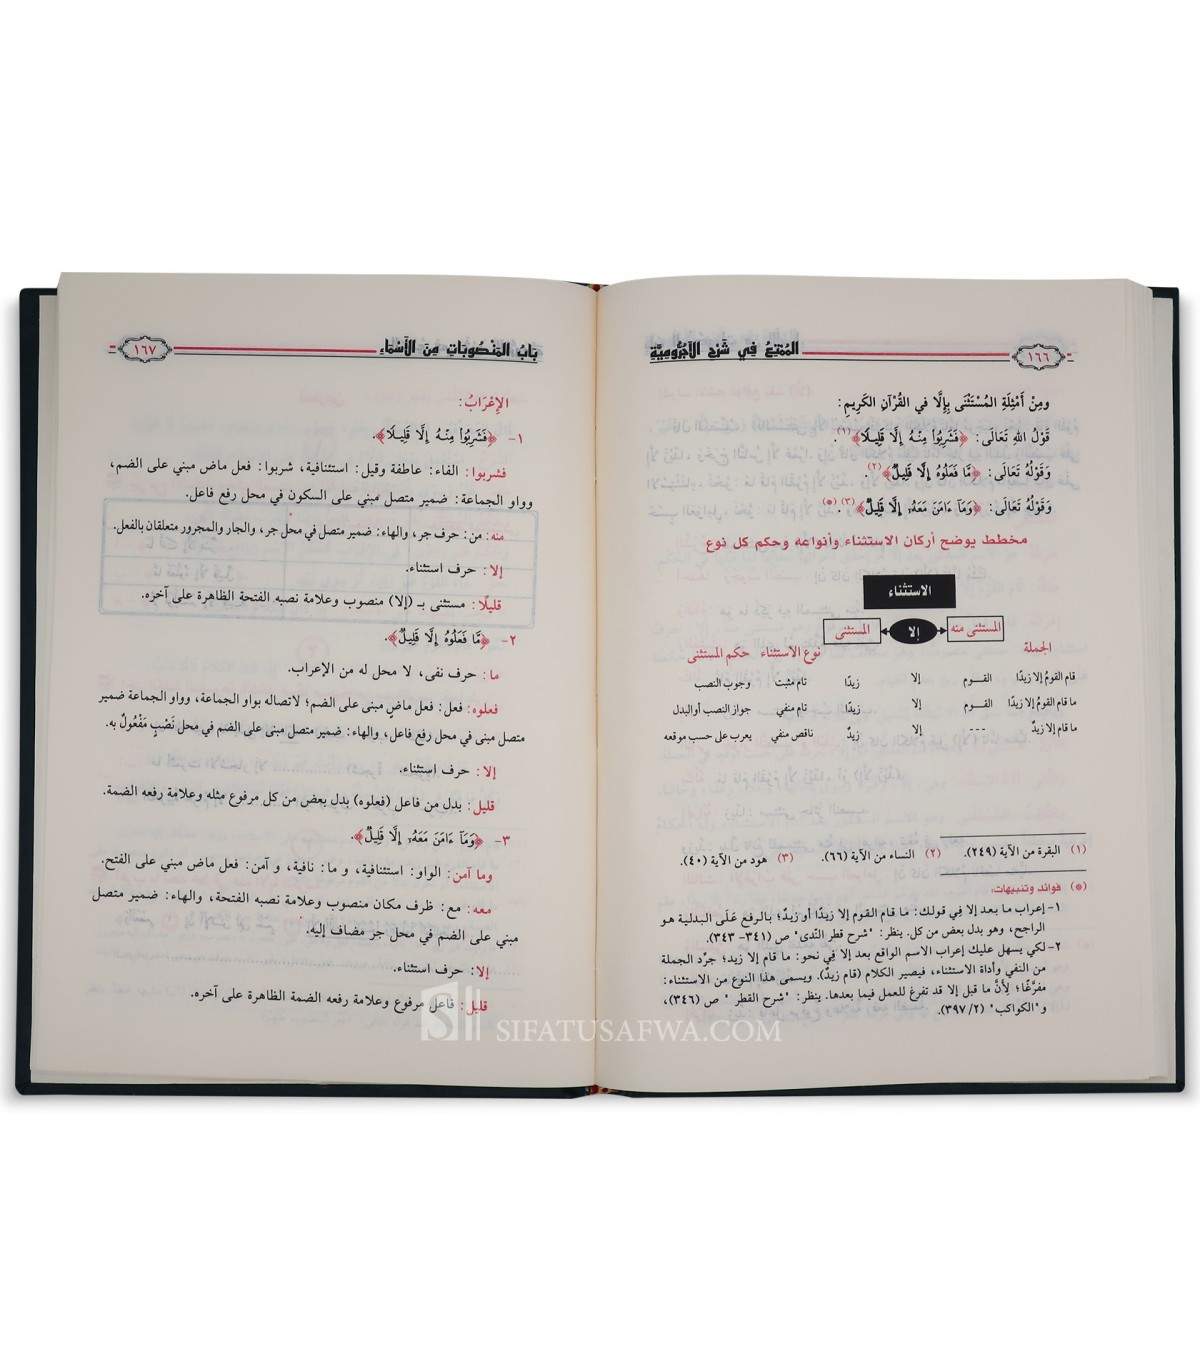 الممتع في شرح الآجرومية ١٦٦
ومِنْ أَمْثِلَةِ المُسْتَثْنَى بِإِلَّا في القُرْآنِ الكَرِيمِ:
قَوْلُ اللهِ تَعَالَى: ﴿فَشَرِبُوا۟ مِنْهُ إِلَّا قَلِيلًا﴾(١).
وَقَوْلُهُ تَعَالَى: ﴿مَّا فَعَلُوهُ إِلَّا قَلِيلٌ﴾(٢).
وَقَوْلُهُ تَعَالَى: ﴿وَمَآ ءَامَنَ مَعَهُۥٓ إِلَّا قَلِيلٌ﴾(٣).(*)
مخطط يوضح أركان الاستثناء وأنواعه وحكم كل نوع
الاستثناء
المستثنى منه إلا المستثنى
الجملة نوع الاستثناء حكم المستثنى
قام القومُ إلا زيدًا القـوم إلا زيدًا تام مثبت وجوب النصب
ما قام القومُ إلا زيدًا القـوم إلا زيدًا تام منفي جواز النصب أو البدل
ما قام إلا زيدٌ --- إلا زيدٌ ناقص منفي يعرب على حسب موقعه
(١) البقرة من الآية (٢٤٩). (٢) النساء من الآية (٦٦). (٣) هود من الآية (٤٠).
(*) فوائد وتنبيهات:
١- إعراب ما بعد إلا في قولك: ما قام القوم إلا زيدًا أو زيدٌ؛ بالرفع عَلَى البدلية هو
الراجح، وهو بدل بعض من كل. ينظر: "شرح قطر النّدى" ص (٣٤١- ٣٤٣).
٢- لكي يسهل عليك إعراب الاسم الواقع بعد إلا في نحو: ما قام إلا زيد؛ جرّد الجملة
من النفي وأداة الاستثناء، فيصير الكلام (قام زيدٌ). ويسمى هذا النوع من الاستثناء:
مفرّغًا؛ لِأَنَّ ما قبل إلا قد تفرغ للعمل فيما بعدها. ينظر: "شرح القطر" ص (٣٤٦)،
و"الكواكب" (٣٩٧/٢).
باب المنصوبات من الأسماء ١٦٧
الإِعْرَابُ:
١- ﴿فَشَرِبُوا۟ مِنْهُ إِلَّا قَلِيلًا﴾.
فشربوا: الفاء: عاطفة وقيل: استئنافية، شربوا: فعل ماض مبني على الضم،
وواو الجماعة: ضمير متصل مبني على السكون في محل رفع فاعل.
منه: من: حرف جر، والهاء: ضمير متصل في محل جر، والجار والمجرور متعلقان بالفعل.
إلا: حرف استثناء.
قليلًا: مستثنى بـ (إلا) منصوب وعلامة نصبه الفتحة الظاهرة على آخره.
٢- ﴿مَّا فَعَلُوهُ إِلَّا قَلِيلٌ﴾.
ما: حرف نفى، لا محل له من الإعراب.
فعلوه: فعل: فعل ماضٍ مبنى على الضم؛ لاتصاله بواو الجماعة، وواو الجماعة ضمير
متصل مبنى في محل رفع فاعل، والهاء: ضمير متصل مبنى على الضم في محل نَصْبٍ مَفْعُولٌ به.
إلا: حرف استثناء.
قليل: بدل من فاعل (فعلوه) بدل بعض من كل مرفوع مثله وعلامة رفعه الضمة.
٣- ﴿وَمَآ ءَامَنَ مَعَهُۥٓ إِلَّا قَلِيلٌ﴾.
وما آمن: الواو: استئنافية، و ما: نافية، و آمن: فعل ماض مبني على الفتح.
معه: مع: ظرف مكان منصوب وعلامة نصبه الفتحة، والهاء: ضمير متصل
مبني على الضم في محل جر مضاف إليه.
إلا: حرف استثناء.
قليل: فاعل مرفوع وعلامة رفعه الضمة الظاهرة على آخره.
SIFATUSAFWA.COM